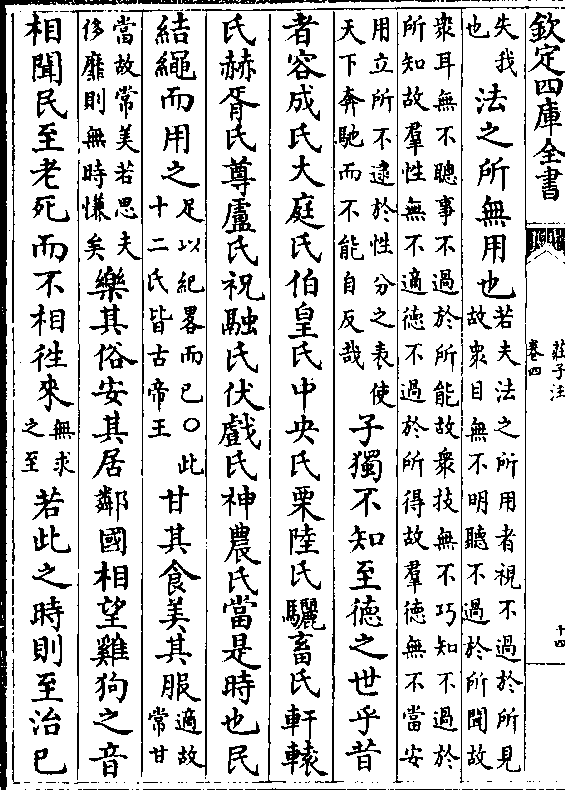 欽定四庫全書
莊子注
卷四
十四
失我也法之所無用也若夫法之所用者視不過於所見故衆目無不明聽不過於所聞故
衆耳無不聰事不過於所能故衆技無不巧知不過於
所知故羣性無不適德不過於所得故羣德無不當安
用立所不逮於性分之表使天下奔馳而不能自反哉子獨不知至德之世乎昔
者容成氏大庭氏伯皇氏中央氏栗陸氏驪畜氏軒轅
氏赫胥氏尊盧氏祝融氏伏戲氏神農氏當是時也民
結繩而用之足以紀畧而已○此十二氏皆古帝王甘其食美其服適故常甘
當故常美若思夫侈靡則無時慊矣樂其俗安其居鄰國相望雞狗之音
相聞民至老死而不相徃來無求之至若此之時則至治已